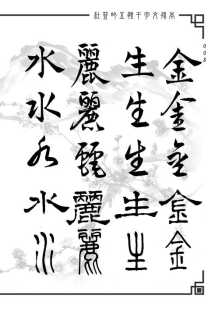 五體千字文
008
金金金金金
生生生生生
麗麗麗麗麗
水水水水水